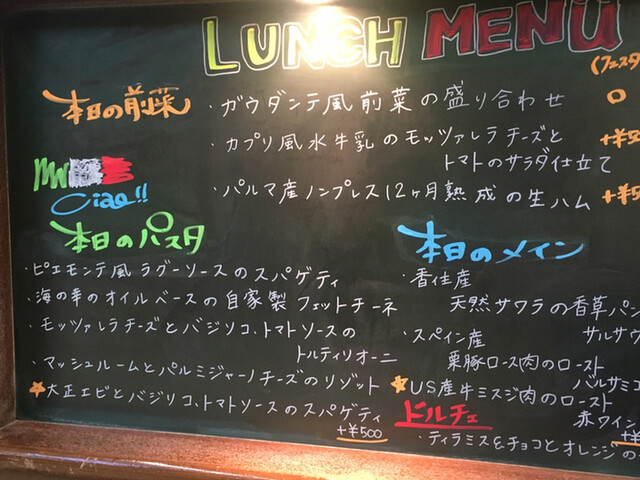 LUNCH MENU
(フェスタ
本日の前菜
・ガウダンテ風前菜の盛り合わせ
○
・カプリ風水牛乳のモッツァレラチーズと
トマトのサラダ仕立て
・パルマ産ノンプレス12ヶ月熟成の生ハム
Ciao!!
本日のパスタ
・ピエモンテ風ラグーソースのスパゲティ
・海の幸のオイルベースの自家製フェットチーネ
・モッツァレラチーズとバジリコ、トマトソースの
トルティリオーニ
・マッシュルームとパルミジャーノチーズのリゾット
大正エビとバジリコ、トマトソースのスパゲティ
+¥500
本日のメイン
・香住産
天然サワラの香草パン
サルサヴ
・スペイン産
栗豚ロース肉のロースト
バルサミコ
US産牛ミスジ肉のロースト
赤ワイン
ドルチェ
・ティラミス&チョコとオレンジの